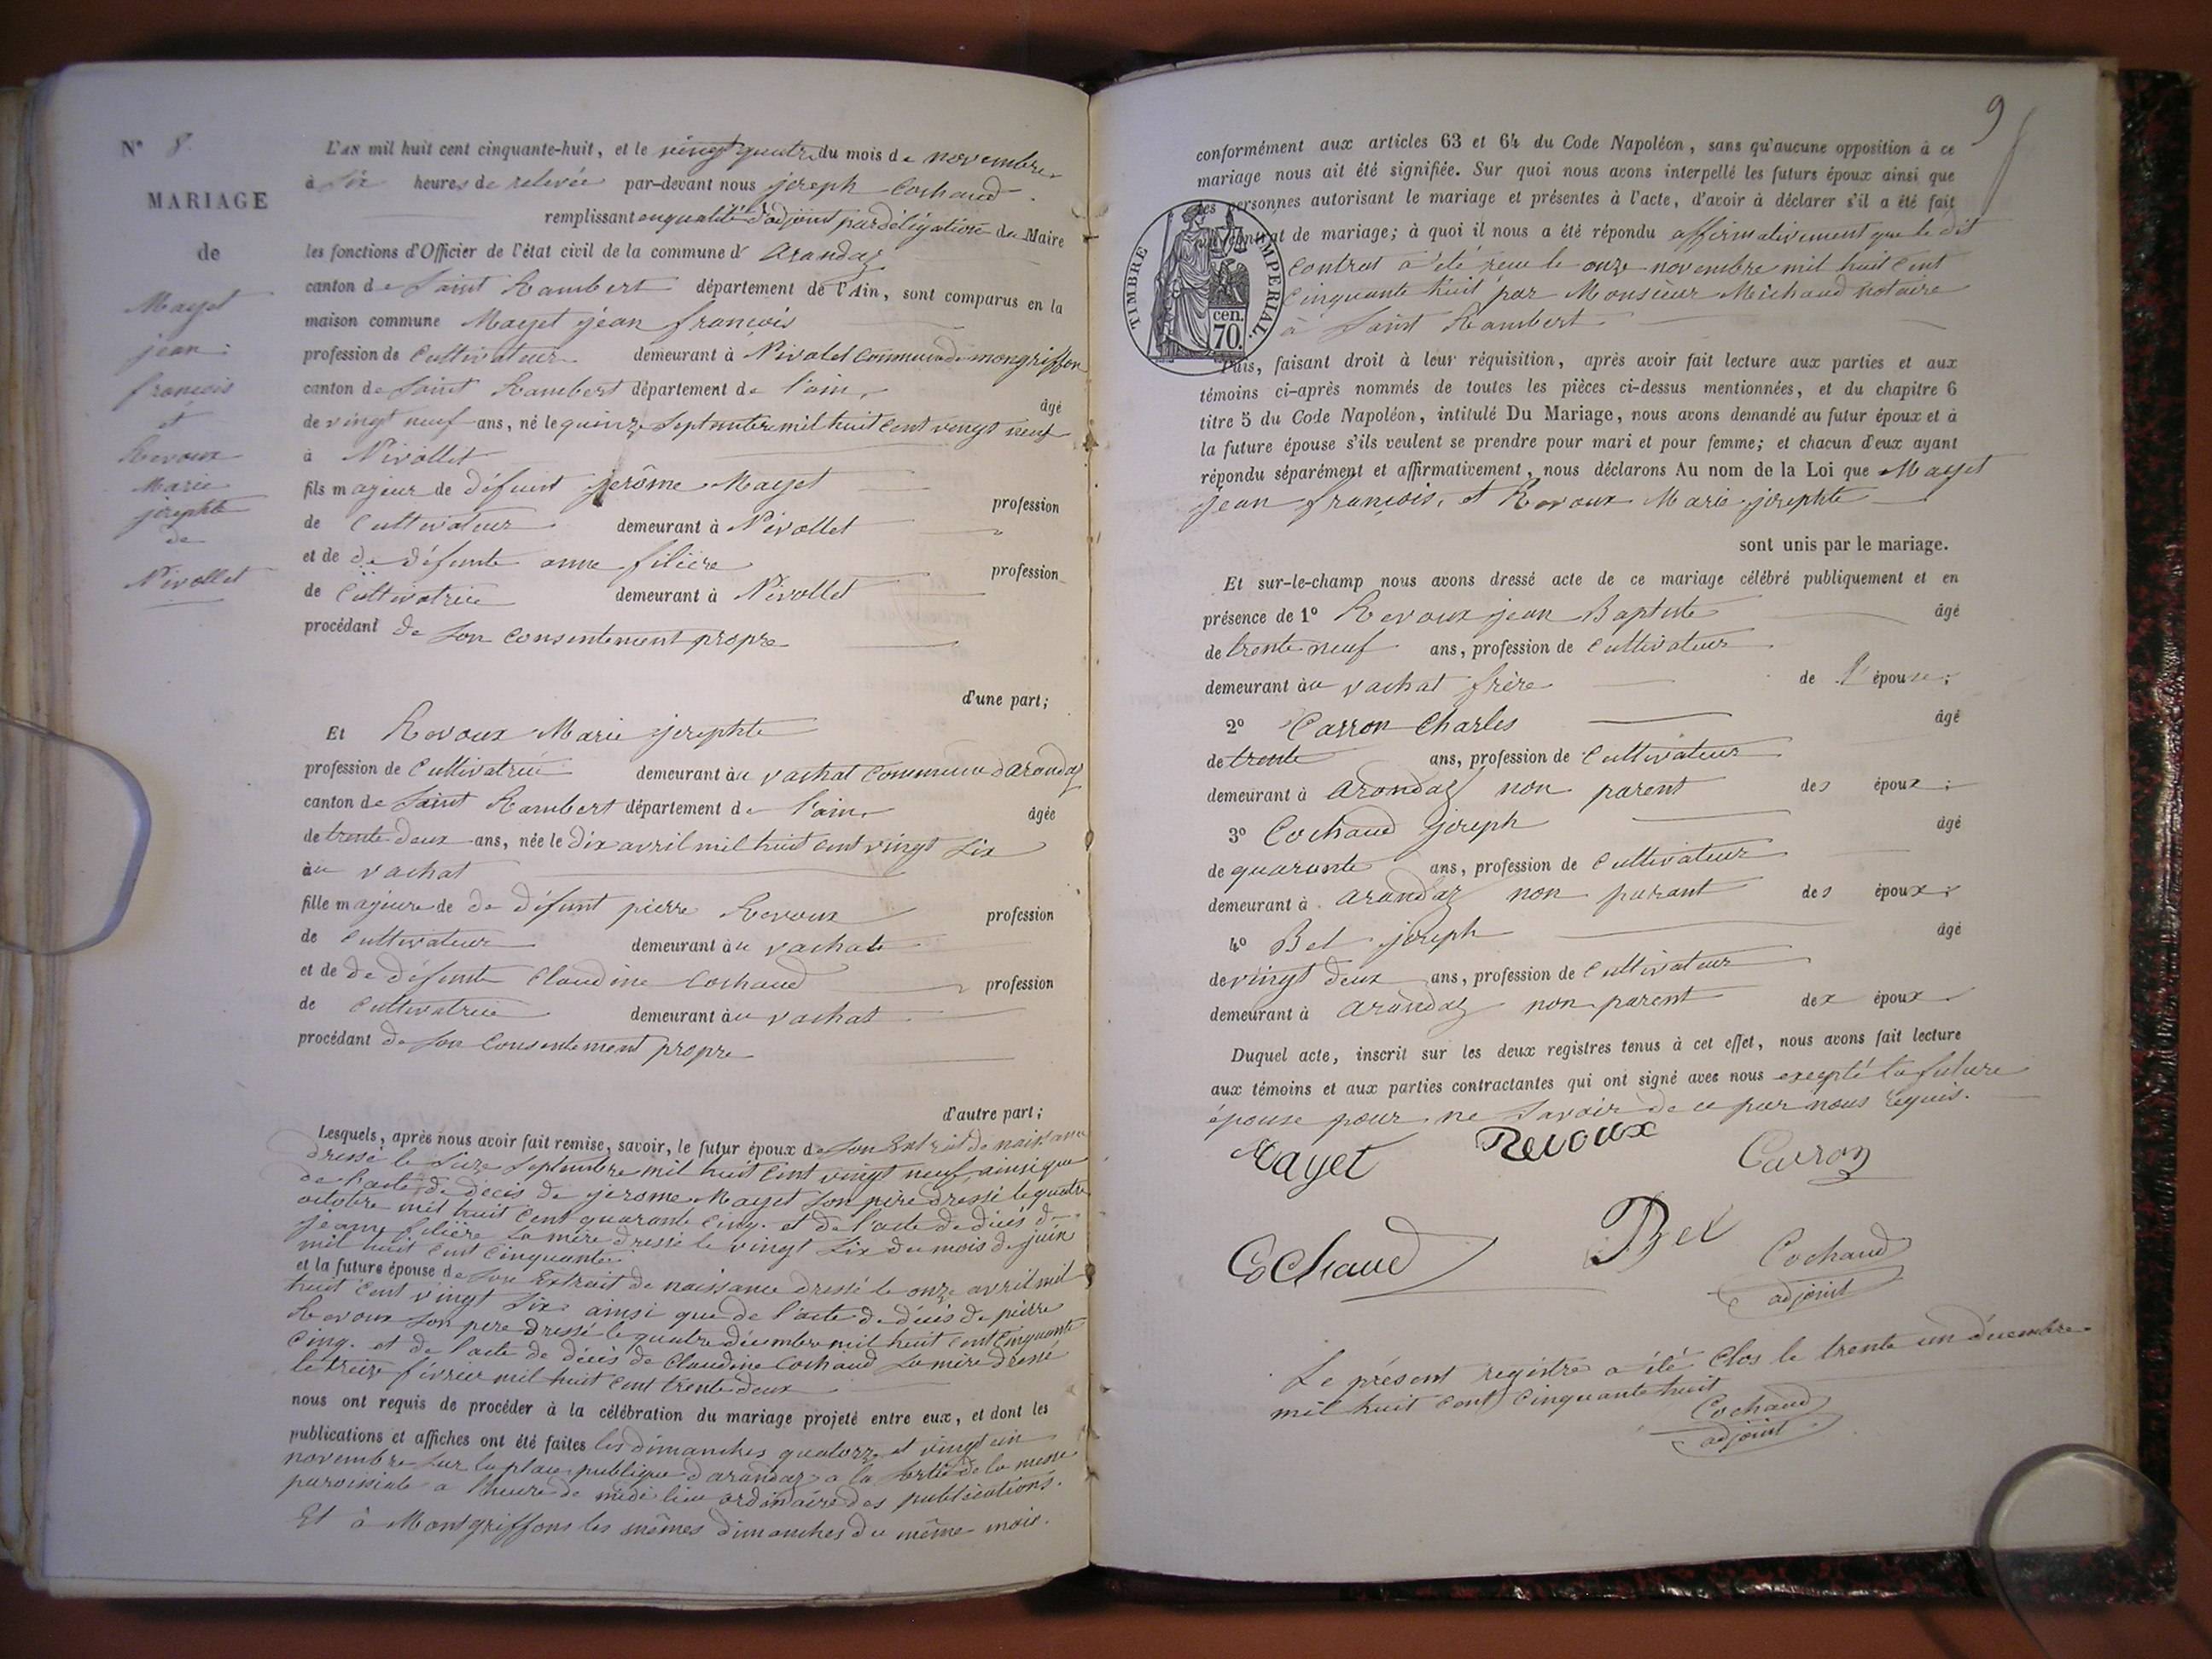 N° 8.
MARIAGE
de
Mayet
jean
francois
et
Revoux
Marie
josephte
de
Nivollet
L'AN mil huit cent cinquante-huit, et le vingt quatre du mois de novembre
à six heures de relevée par-devant nous joseph Cochaud
remplissant en qualité d'adjoint par délégation du Maire
les fonctions d'Officier de l'état civil de la commune d'Arandaz
canton de Saint Rambert département de l'Ain, sont comparus en la
maison commune Mayet jean françois
profession de Cultivateur demeurant à Nivolet Commune de mongriffon
canton de Saint Rambert département de l'ain, âgé
de vingt neuf ans, né le quinze Septembre mil huit Cent vingt neuf
à Nivollet
fils majeur de défunt jerôme Mayet profession
de Cultivateur demeurant à Nivollet
et de de défunte anne filière profession
de Cultivatrice demeurant à Nivollet
procédant de son consentement propre
d'une part;
Et Revoux Marie josephte
profession de Cultivatrice demeurant àu vachat Commune d'Arandaz
canton de Saint Rambert département de l'ain, âgée
de trente deux ans, née le dix avril mil huit cent vingt six
àu vachat
fille majeure de de défunt pierre Revoux profession
de Cultivateur demeurant àu vachat
et de de défunte Claudine Cochaud profession
de Cultivatrice demeurant àu vachat
procédant de son Consentement propre
d'autre part;
Lesquels, après nous avoir fait remise, savoir, le futur époux de son Extrait de naissance
dressé le seize Septembre mil huit Cent vingt neuf, ainsi que
de l'acte de décès de jerome Mayet son père dressé le quatre
octobre mil huit Cent quarante Cinq. et de l'acte de décès de
jeanne filière sa mère dressé le vingt six du mois de juin
mil huit Cent Cinquante.
et la future épouse de son Extrait de naissance dressé le onze avril mil
huit Cent vingt six ainsi que de l'acte de décès de pierre
Revoux son pere dressé le quatre décembre mil huit Cent Cinquante
Cinq. et de l'acte de décès de Claudine Cochaud sa mère dressé
le treize février mil huit Cent trente deux
nous ont requis de procéder à la célébration du mariage projeté entre eux, et dont les
publications et affiches ont été faites les dimanches quatorze et vingt un
novembre sur la place publique d'arandaz a la sortie de la messe
paroissiale a l'heure de midi lieu ordinaire des publications.
Et à Montgriffons les mêmes dimanches du même mois.
9
conformément aux articles 63 et 64 du Code Napoléon, sans qu'aucune opposition à ce
mariage nous ait été signifiée. Sur quoi nous avons interpellé les futurs époux ainsi que
les personnes autorisant le mariage et présentes à l'acte, d'avoir à déclarer s'il a été fait
un contrat de mariage; à quoi il nous a été répondu affirmativement que le dit
Contrat a été reçu le onze novembre mil huit Cent
Cinquante huit par Monsieur Michaud notaire
à Saint Rambert
TIMBRE IMPERIAL.
cen.
70.
Puis, faisant droit à leur réquisition, après avoir fait lecture aux parties et aux
témoins ci-après nommés de toutes les pièces ci-dessus mentionnées, et du chapitre 6
titre 5 du Code Napoléon, intitulé Du Mariage, nous avons demandé au futur époux et à
la future épouse s'ils veulent se prendre pour mari et pour femme; et chacun d'eux ayant
répondu séparément et affirmativement, nous déclarons Au nom de la Loi que Mayet
jean françois, et Revoux Marie josephte
sont unis par le mariage.
Et sur-le-champ nous avons dressé acte de ce mariage célébré publiquement et en
présence de 1° Revoux jean Baptiste âgé
de trente neuf ans, profession de Cultivateur
demeurant àu vachat frère de l'épouse;
2° Carron Charles âgé
de trente ans, profession de Cultivateur
demeurant à Arandaz non parent des époux;
3° Cochaud joseph âgé
de quarante ans, profession de Cultivateur
demeurant à arandaz non parant des époux
4° Bel joseph âgé
de vingt deux ans, profession de Cultivateur
demeurant à Arandaz non parent des époux
Duquel acte, inscrit sur les deux registres tenus à cet effet, nous avons fait lecture
aux témoins et aux parties contractantes qui ont signé avec nous excepté la future
épouse pour ne Savoir de ce par nous requis.
Mayet Revoux Carron
Cochaud Bel Cochaud
adjoint
Le présent registre a été Clos le trente un décembre
mil huit Cent Cinquante huit
Cochaud
adjoint